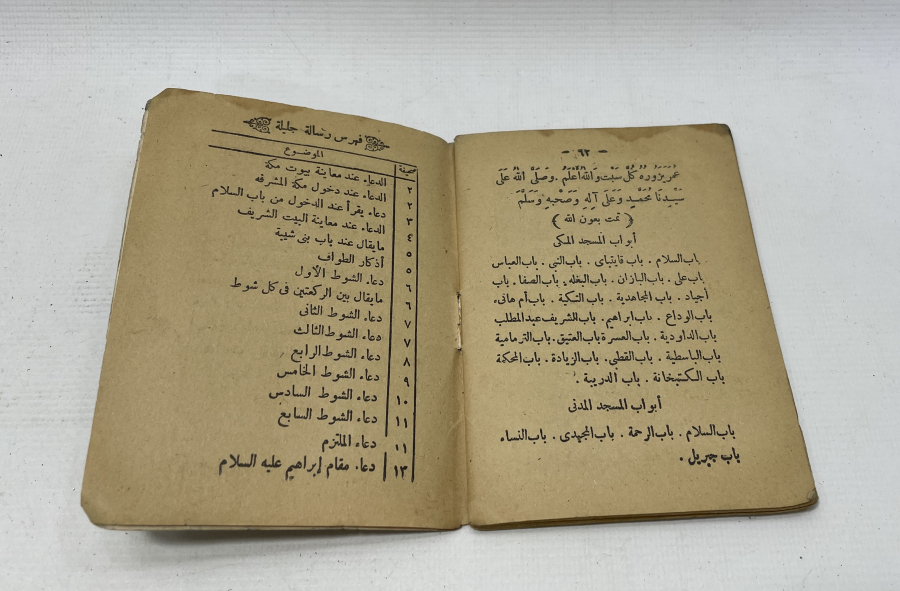 - ٦٢ -
عُمَرَ يَزُورُهُ كُلَّ سَبْت وَاللهُ أَعْلَمُ. وَصَلَّى اللهُ عَلَى
سَيِّدِنَا مُحَمَّدٍ وَعَلَى آلِهِ وَصَحْبِهِ وَسَلَّمَ
( تمت بعون الله )
أبواب المسجد المكى
باب السلام . باب قايتباى . باب النبى . باب العباس
باب على . باب البازان . باب البغله . باب الصفا . باب
أجياد . باب المجاهدية . باب التكية . باب أم هانىء
باب الوداع . باب ابراهيم . باب الشريف عبد المطلب
باب الداودية . باب العمرة باب العتيق . باب الزمامية
باب الباسطية . باب القطبى . باب الزيادة . باب المحكمة
باب الكتبخانة . باب الدريبة .
أبواب المسجد المدنى
باب السلام . باب الرحمة . باب المجيدى . باب النساء
باب جبريل .
فهرس رسالة جليلة
صحيفة الموضوع
٢ الدعاء عند معاينة بيوت مكة
٢ الدعاء عند دخول مكة المشرفه
٣ دعاء يقرأ عند الدخول من باب السلام
٤ الدعاء عند معاينة البيت الشريف
٥ مايقال عند باب بنى شيبة
٥ أذكار الطواف
٦ دعاء الشوط الأول
٦ مايقال بين الركعتين فى كل شوط
٧ دعاء الشوط الثانى
٧ دعاء الشوط الثالث
٨ دعاء الشوط الرابع
٩ دعاء الشوط الخامس
١٠ دعاء الشوط السادس
١١ دعاء الشوط السابع
١١ دعاء الملتزم
١٣ دعاء مقام إبراهيم عليه السلام